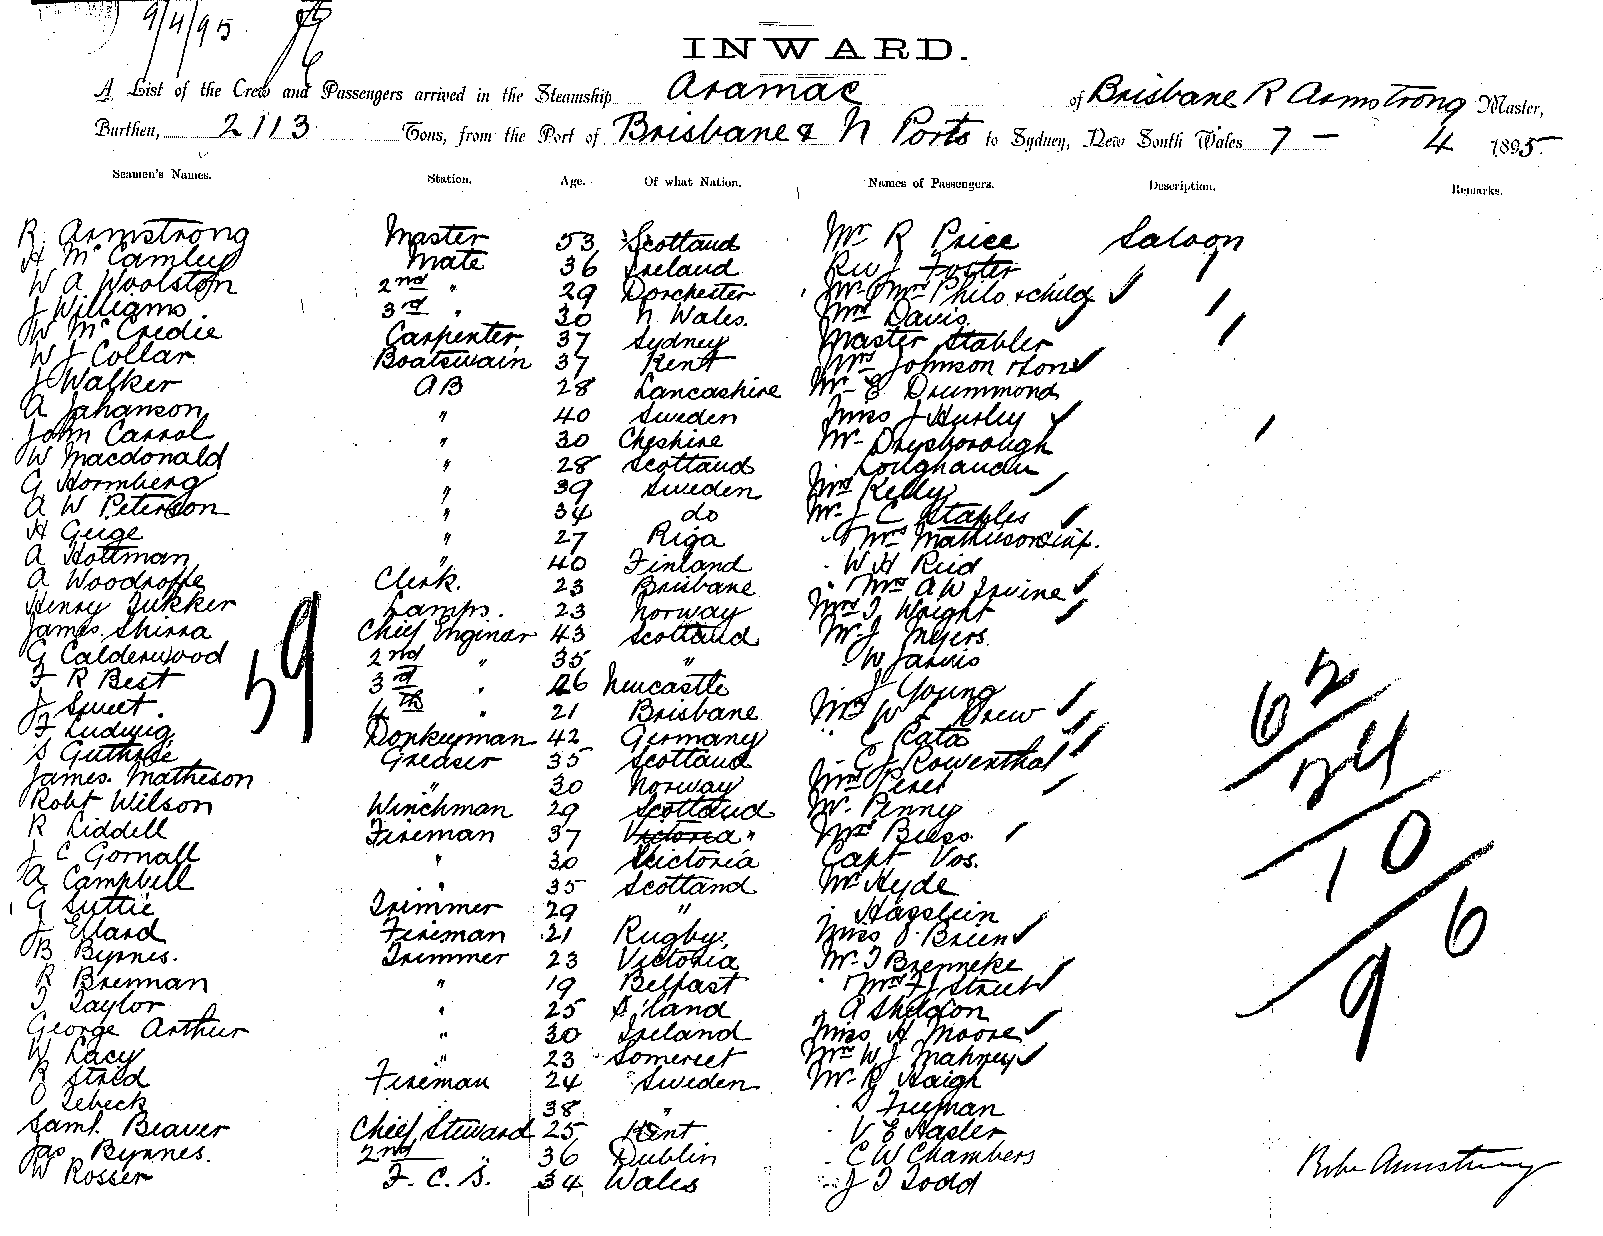 9/4/95
INWARD.
A List of the Crew and Passengers arrived in the Steamship Aramac of Brisbane R Armstrong Master,
Burthen, 2113 Tons, from the Port of Brisbane & N Ports to Sydney, New South Wales 7 - 4 1895
Seamen's Names. Station. Age. Of what Nation. Names of Passengers. Description. Remarks.
R Armstrong Master 53 Scotland Mr R Price Saloon
H McCamley Mate 36 Ireland Rev J Foster
W A Woolston 2nd " 29 Dorchester Mr Mrs Philo & child
J Williams 3rd " 30 N. Wales. Mrs Davis
W McCredie Carpenter 37 Sydney Master Stabler
W J Collar Boatswain 37 Kent Mrs Johnson
J Walker AB 28 Lancashire Mr E Drummond
A Johanson " 40 Sweden Miss J Hurley
John Carrol " 30 Cheshire Mr Drysborough
W Macdonald " 28 Scotland
G Hormberg " 39 Sweden Mrs Kelly
A W Peterson " 34 do Mr J C Staples
H Geige " 27 Riga Mrs Mathieson & inf.
A Hottman " 40 Finland W H Reid
A Woodroffe Clerk. 23 Brisbane Mrs A W Irvine
Henry Jukker Lamps. 23 Norway Mrs J Wright
James Shirra Chief Enginer 43 Scotland Mr J Meyers
G Calderwood 2nd " 35 " W Jarvis
F R Best 3rd " 26 Newcastle J Young
J Sweet. 4th " 21 Brisbane W L Drew
F Ludwig Donkeyman 42 Germany C Rata
S Guthrie Greaser 35 Scotland C J Rowenthal
James Matheson " 30 Norway Mrs Peret
Robt Wilson Winchman 29 Scotland Mr Penny
R Liddell Fireman 37 Victoria " Mrs Bless
J C Gornall " 30 Victoria Capt Vos.
A Campbell 35 Scotland Mr Hyde
G Suttie Trimmer 29 " Haslein
J Ellard Fireman 21 Rugby Miss O'Brien
B Byrnes. Trimmer 23 Victoria Mr J Brenneke
R Brennan " 19 Belfast Mrs F J Street
T Taylor " 25 A Sheldon
George Arthur " 30 Ireland Miss H Moore
W Lacy " 23 Somerset Mrs W J Mahney
Fireman 24 Sweden Mr R Haigh
O Lebeck 38 " Freeman
Saml. Beaver Chief Steward 25 Kent V E Hasler
Jas Byrnes. 2nd " 36 Dublin C W Chambers
W Rosser F. C. S. 34 Wales J T Todd
59
62
24
10
96
Robt Armstrong